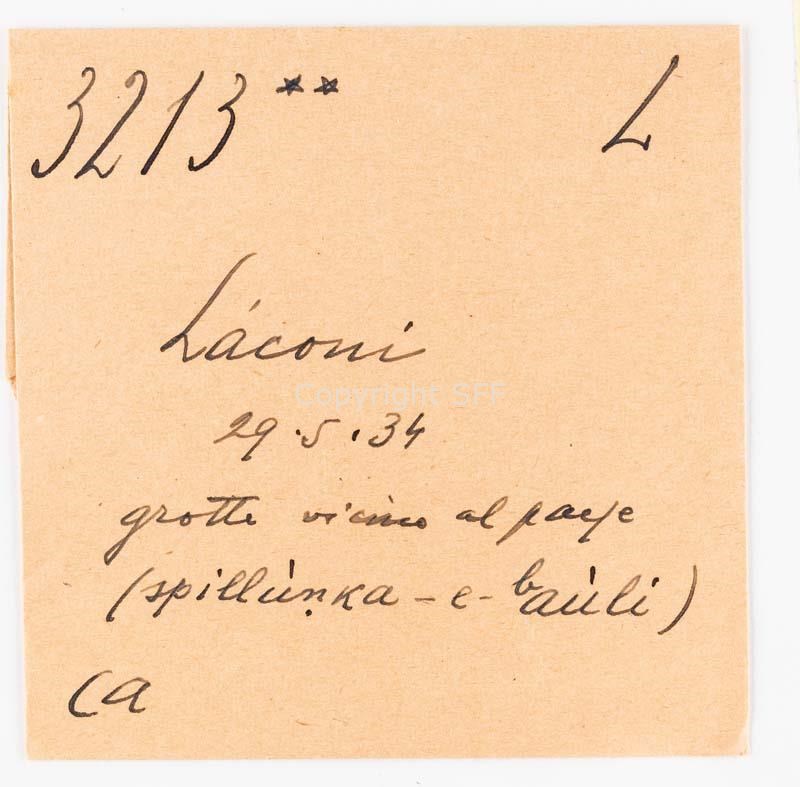 3213 ** L
Láconi
Copyright SFF
29.5.34
grotte vicino al paese
(spillùṇka-e-baùli)
Ca